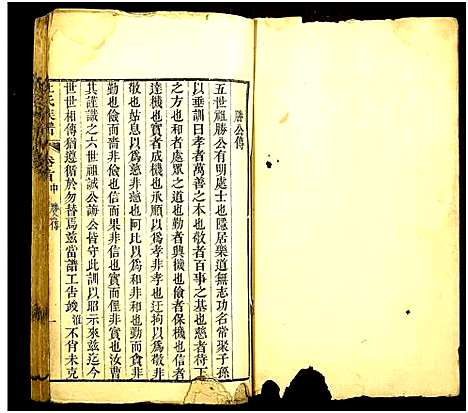 勝公傳
五世祖勝公有明處士也隱居樂道無志功名常聚子孫
以垂訓曰孝者萬善之本也敬者百事之基也慈者待下
之方也和者處眾之道也勤者興機也儉者保機也信者
達機也實者成機也承順以為孝非孝也迂拘以為敬非
敬也姑息以為慈非慈也阿比以為和非和也貪求非
勤也儉而嗇非儉也信而果非信也徑非實也汝曹
其謹識之六世祖誠公誨公皆守此訓以昭示來茲迄今
世世相傳猶遵循於勿替焉茲當譜工告竣淮不肖未克
氏族譜
卷首中
傳
一